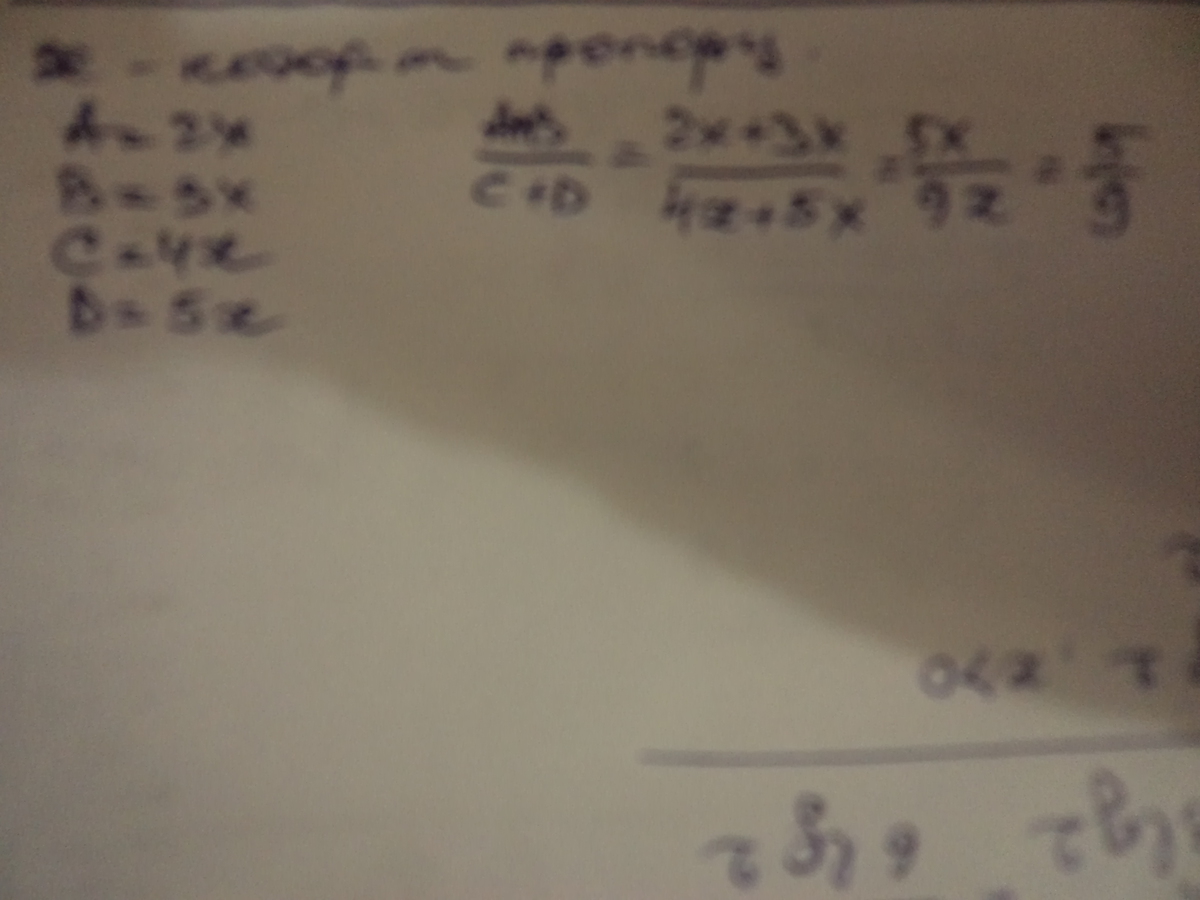 x - коэф-т пропорц.
A = 2x
B = 3x
C = 4x
D = 5x
A+B / C+D = 2x+3x / 4x+5x = 5x / 9x = 5 / 9
x>0
6 lg 2